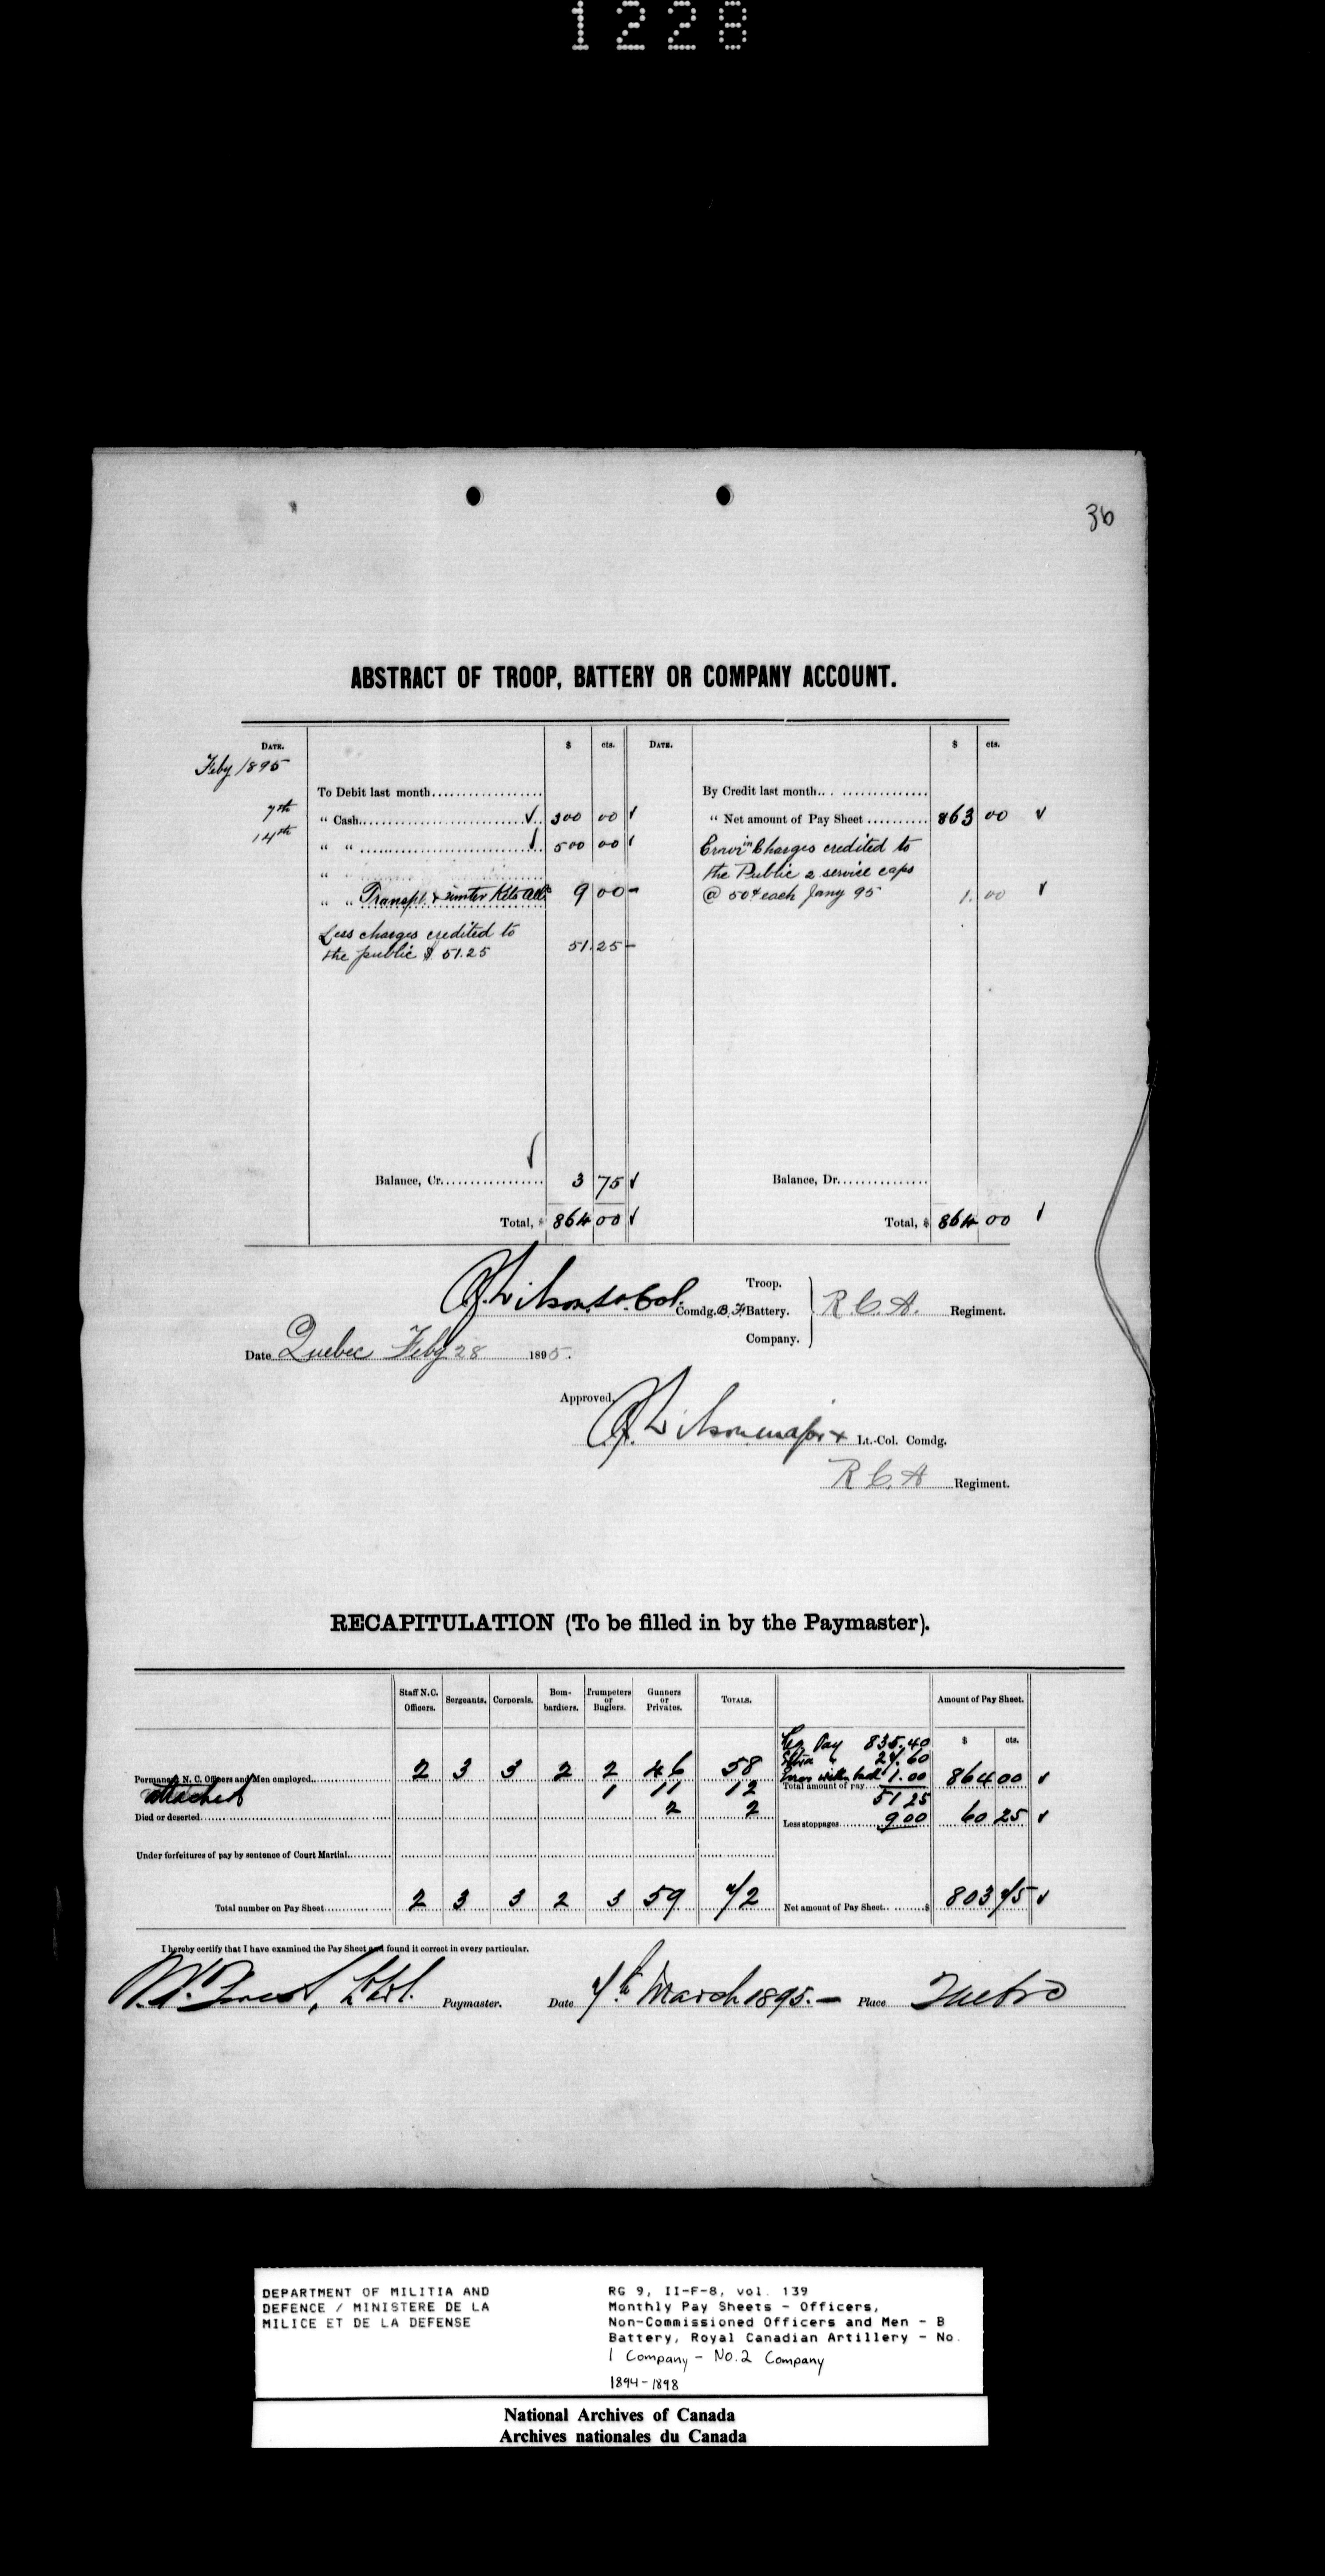 1228
36
ABSTRACT OF TROOP, BATTERY OR COMPANY ACCOUNT.
DATE. $ cts. DATE. $ cts.
Feby 1895
To Debit last month By Credit last month
7th " Cash 300 00 " Net amount of Pay Sheet 863 00
14th " " 500 00 Error in Charges credited to
" the Public 2 service caps
" " Transpt. & winter Kits All. 9 00 @ 50¢ each Jany 95 1. 00
Less charges credited to
the public $ 51.25 51. 25
Balance, Cr. 3 75 Balance, Dr.
Total, $ 864 00 Total, $ 864 00
Wilson Lt. Col. Comdg. B. F. Battery. R.C.A. Regiment.
Troop.
Company.
Date Quebec Feby 28 1895.
Approved,
Wilson major & Lt.-Col. Comdg.
R.C.A Regiment.
RECAPITULATION (To be filled in by the Paymaster).
Staff N.C. Officers. Sergeants. Corporals. Bombardiers. Trumpeters or Buglers. Gunners or Privates. TOTALS. Amount of Pay Sheet.
$ cts.
Pay 835.40
Extra " 27.60
Permanent N. C. Officers and Men employed 2 3 3 2 2 46 58 Error 1.00
Total amount of pay 864 00
attached 1 11 12 51 25
Died or deserted 2 2 Less stoppages 9.00 60 25
Under forfeitures of pay by sentence of Court Martial
Total number on Pay Sheet 2 3 3 2 3 59 72 Net amount of Pay Sheet $ 803 75
I hereby certify that I have examined the Pay Sheet and found it correct in every particular.
Paymaster. Date 7th March 1895. — Place Quebec
DEPARTMENT OF MILITIA AND
DEFENCE / MINISTERE DE LA
MILICE ET DE LA DEFENSE
RG 9, II-F-8, vol. 139
Monthly Pay Sheets - Officers,
Non-Commissioned Officers and Men - B
Battery, Royal Canadian Artillery - No.
1 Company - No.2 Company
1894-1898
National Archives of Canada
Archives nationales du Canada